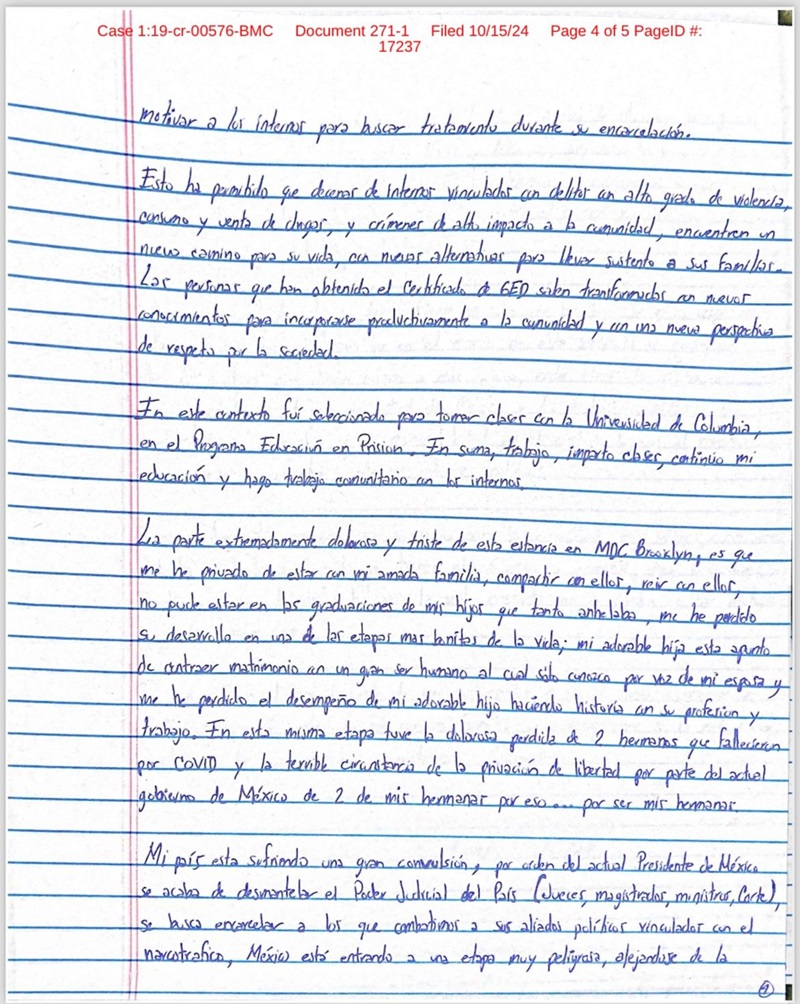 Case 1:19-cr-00576-BMC Document 271-1 Filed 10/15/24 Page 4 of 5 PageID #:
17237
motivar a los internos para buscar tratamiento durante su encarcelación.
Esto ha permitido que decenas de internos vinculados con delitos con alto grado de violencia,
consumo y venta de drogas, y crímenes de alto impacto a la comunidad, encuentren un
nuevo camino para su vida, con nuevas alternativas para llevar sustento a sus familias.
Las personas que han obtenido el Certificado de GED salen transformados con nuevos
conocimientos para incorporarse productivamente a la comunidad y con una nueva perspectiva
de respeto por la sociedad.
En este contexto fuí seleccionado para tomar clases con la Universidad de Columbia,
en el Programa Educación en Prision. En suma, trabajo, imparto clases, continúo mi
educación y hago trabajo comunitario con los internos.
La parte extremadamente dolorosa y triste de esta estancia en MDC Brooklyn, es que
me he privado de estar con mi amada familia, compartir con ellos, reir con ellos,
no pude estar en las graduaciones de mis hijos que tanto anhelaba, me he perdido
su desarrollo en una de las etapas mas bonitas de la vida; mi adorable hija esta apunto
de contraer matrimonio con un gran ser humano al cual sólo conozco por voz de mi esposa y
me he perdido el desempeño de mi adorable hijo haciendo historia en su profesion y
trabajo. En esta misma etapa tuve la dolorosa perdida de 2 hermanos que fallecieron
por COVID y la terrible circunstancia de la privación de libertad por parte del actual
gobierno de México de 2 de mis hermanas por eso.... por ser mis hermanas.
Mi país esta sufriendo una gran convulsión, por orden del actual Presidente de México
se acaba de desmantelar el Poder Judicial del País (Jueces, magistrados, ministros, Corte),
se busca encarcelar a los que combatimos a sus aliados políticos vinculados con el
narcotrafico, México está entrando a una etapa muy peligrosa, alejandose de la